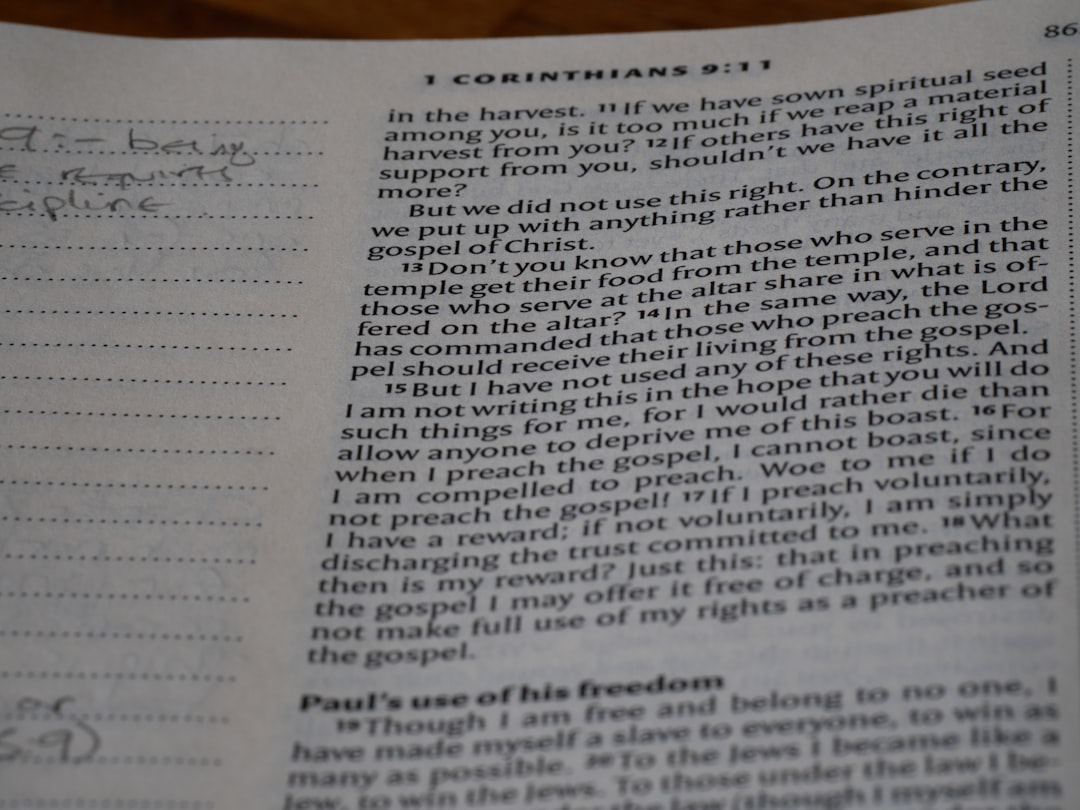 1 CORINTHIANS 9:11
86
being
in the harvest. 11 If we have sown spiritual seed
among you, is it too much if we reap a material
harvest from you? 12 If others have this right of
support from you, shouldn't we have it all the
more?
But we did not use this right. On the contrary,
we put up with anything rather than hinder the
gospel of Christ.
13 Don't you know that those who serve in the
temple get their food from the temple, and that
those who serve at the altar share in what is of-
fered on the altar? 14 In the same way, the Lord
has commanded that those who preach the gos-
pel should receive their living from the gospel.
15 But I have not used any of these rights. And
I am not writing this in the hope that you will do
such things for me, for I would rather die than
allow anyone to deprive me of this boast. 16 For
when I preach the gospel, I cannot boast, since
I am compelled to preach. Woe to me if I do
not preach the gospel! 17 If I preach voluntarily,
I have a reward; if not voluntarily, I am simply
discharging the trust committed to me. 18 What
then is my reward? Just this: that in preaching
the gospel I may offer it free of charge, and so
not make full use of my rights as a preacher of
the gospel.
Paul's use of his freedom
19 Though I am free and belong to no one, I
have made myself a slave to everyone, to win as
many as possible. 20 To the Jews I became like a
Jew, to win the Jews. To those under the law I be-
the law (though I myself am